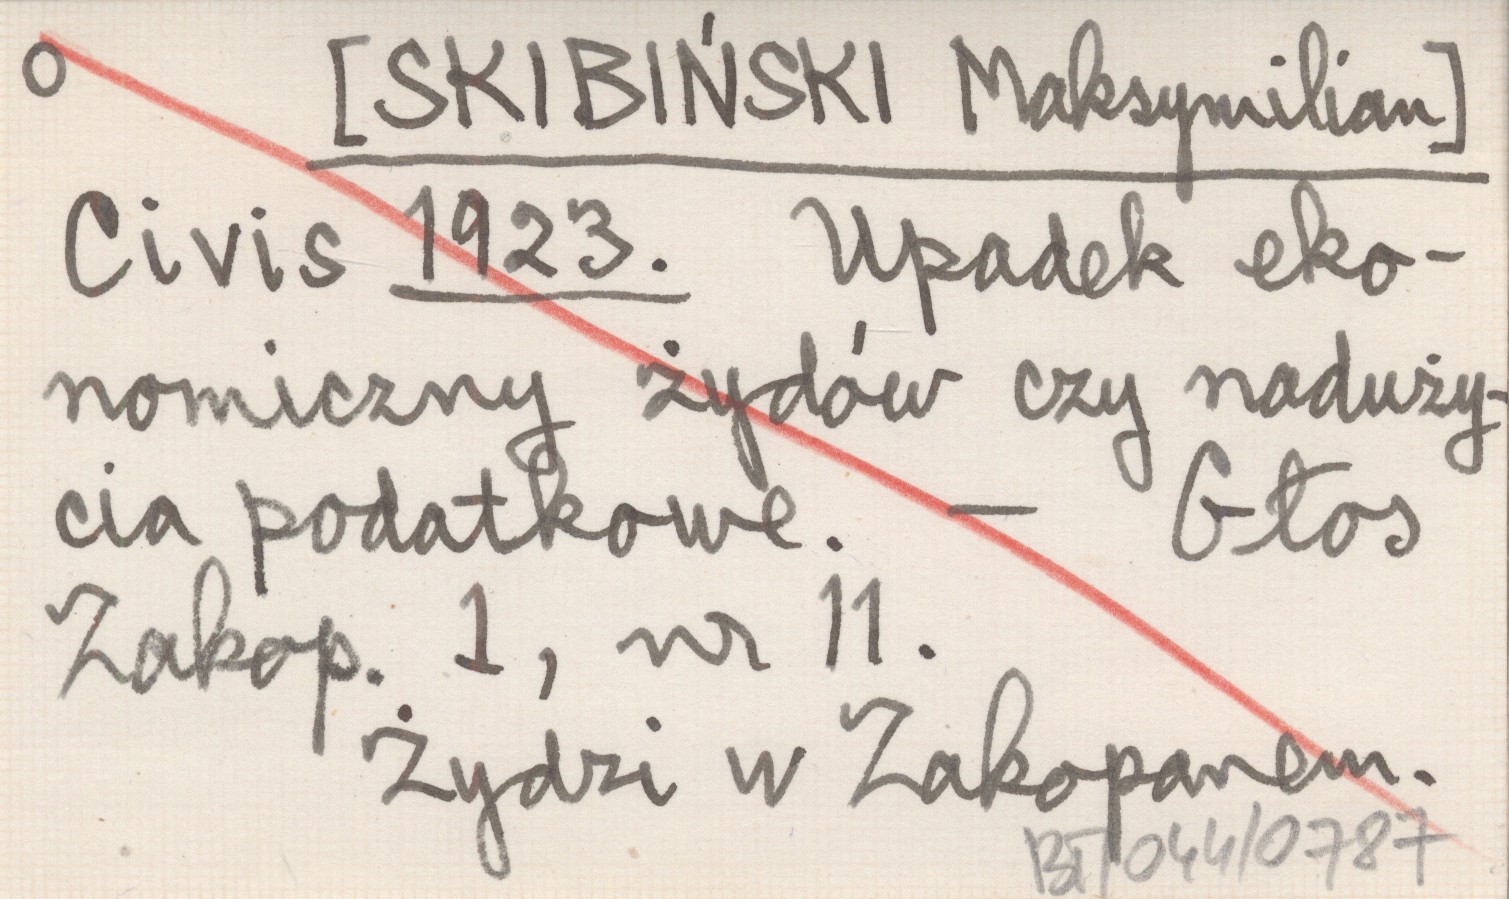 o [SKIBIŃSKI Maksymilian]
Civis 1923. Upadek eko-
nomiczny żydów czy naduży-
cia podatkowe. — Głos
Zakop. 1, nr 11.
Żydzi w Zakopanem.
BT/044/0787